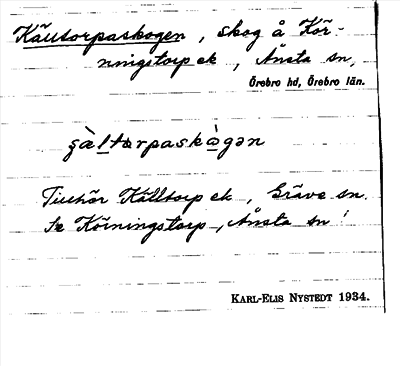 Källtorpaskogen, skog å Kör-
ningstorp ek, Ånsta sn,
Örebro hd, Örebro län.
ʂàltɔrpaskògən
Tillhör Källtorp ek, Gräve sn.
Se Körningstorp, Ånsta sn!
KARL-ELIS NYSTEDT 1934.